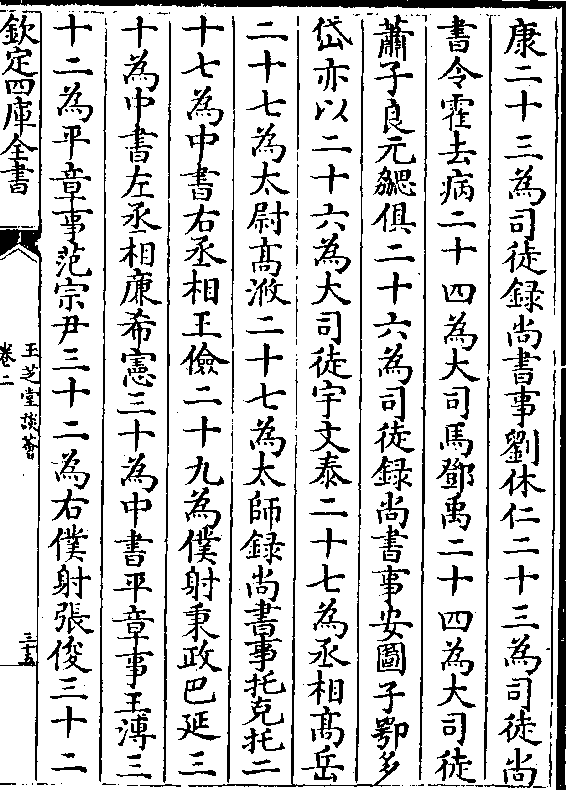 康二十三為司徒録尚書事劉休仁二十三為司徒尚
書令霍去病二十四為大司馬鄧禹二十四為大司徒
蕭子良元勰俱二十六為司徒録尚書事安圖子鄂多
岱亦以二十六為大司徒宇文泰二十七為丞相髙岳
二十七為太尉髙㴲二十七為太師録尚書事托克托二
十七為中書右丞相王儉二十九為僕射秉政巴延三
十為中書左丞相廉希憲三十為中書平章事王溥三
十二為平章事范宗尹三十二為右僕射張俊三十二
欽定四庫全書
玉芝堂談薈
卷二
三十五